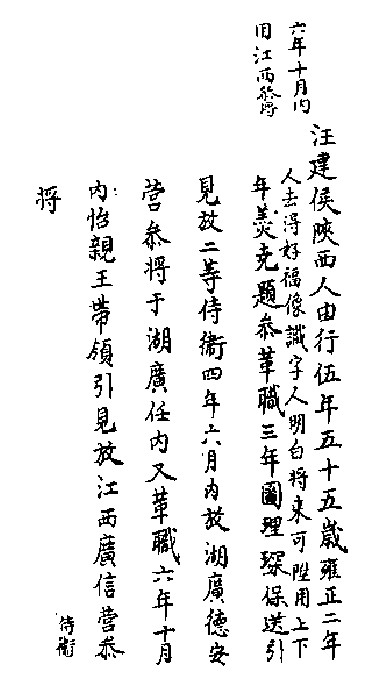 六年十月內
用江西叅將
汪建侯陝西人由行伍年五十五歲雍正二年
人去得好福像識字人明白將來可陞用上下
年羹堯題叅革職三年圖理琛保送引
見放二等侍衛四年六月內放湖廣德安
營叅將于湖廣任內又革職六年十月
內怡親王帶領引見放江西廣信營叅
將
侍衛